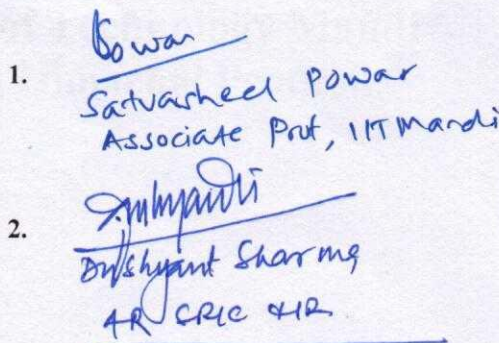 1.
Powar
Satvasheel Powar
Associate Prof, IIT Mandi
2.
Dushyant Sharma
AR SRIC &IR